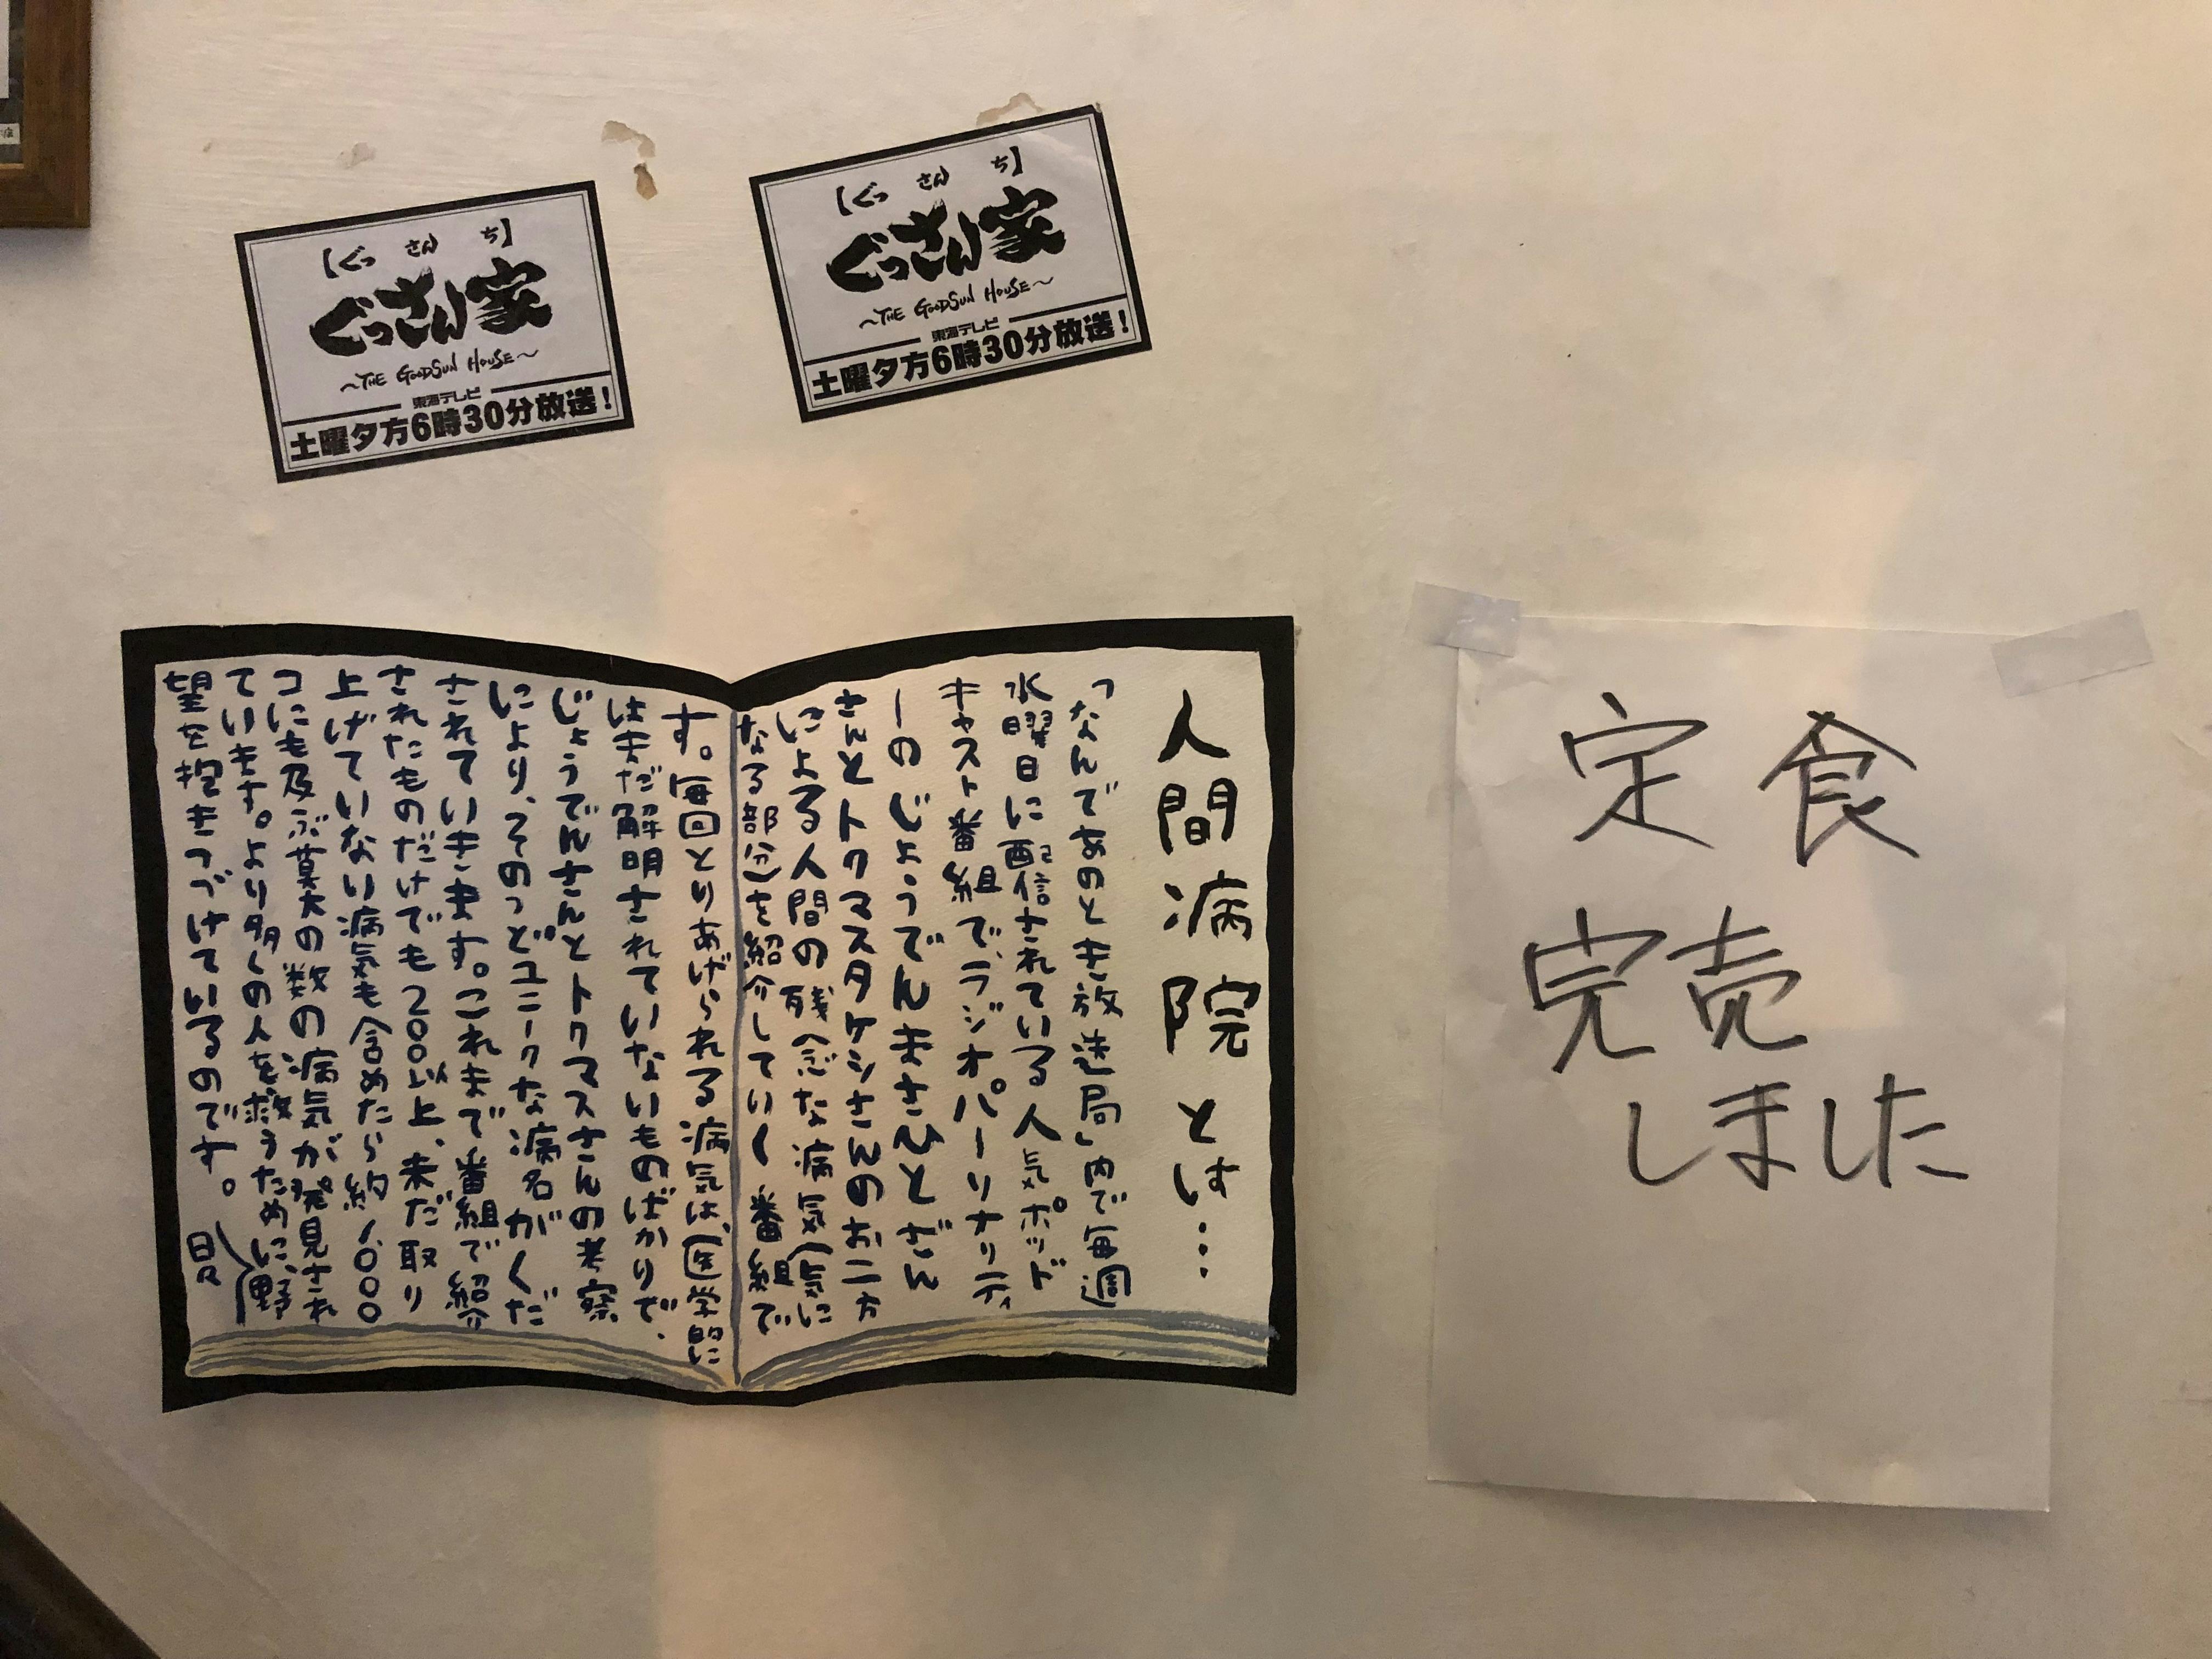 【ぐっさんち】
ぐっさん家
～THE GOODSUN HOUSE～
東海テレビ
土曜夕方6時30分放送！
【ぐっさんち】
ぐっさん家
～THE GOODSUN HOUSE～
東海テレビ
土曜夕方6時30分放送！
人間病院とは…
「なんであのとき放送局」内で毎週
水曜日に配信されている人気ポッド
キャスト番組で、ラジオパーソナリティ
ーのじょうでんまさひとさん
さんとトクマスタケシさんのお二方
による人間の残念な病気(気に
なる部分)を紹介していく番組で
す。毎回とりあげられる病気は、医学的に
は未だ解明されていないものばかりで、
じょうでんさんとトクマスさんの考察
により、そのつどユニークな病名がくだ
されていきます。これまで番組で紹介
されたものだけでも200以上、未だ取り
上げていない病気も含めたら約1,000
コにも及ぶ莫大の数の病気が発見され
ています。より多くの人を救うために、野
望を抱きつづけているのです。
日々
定食
完売
しました